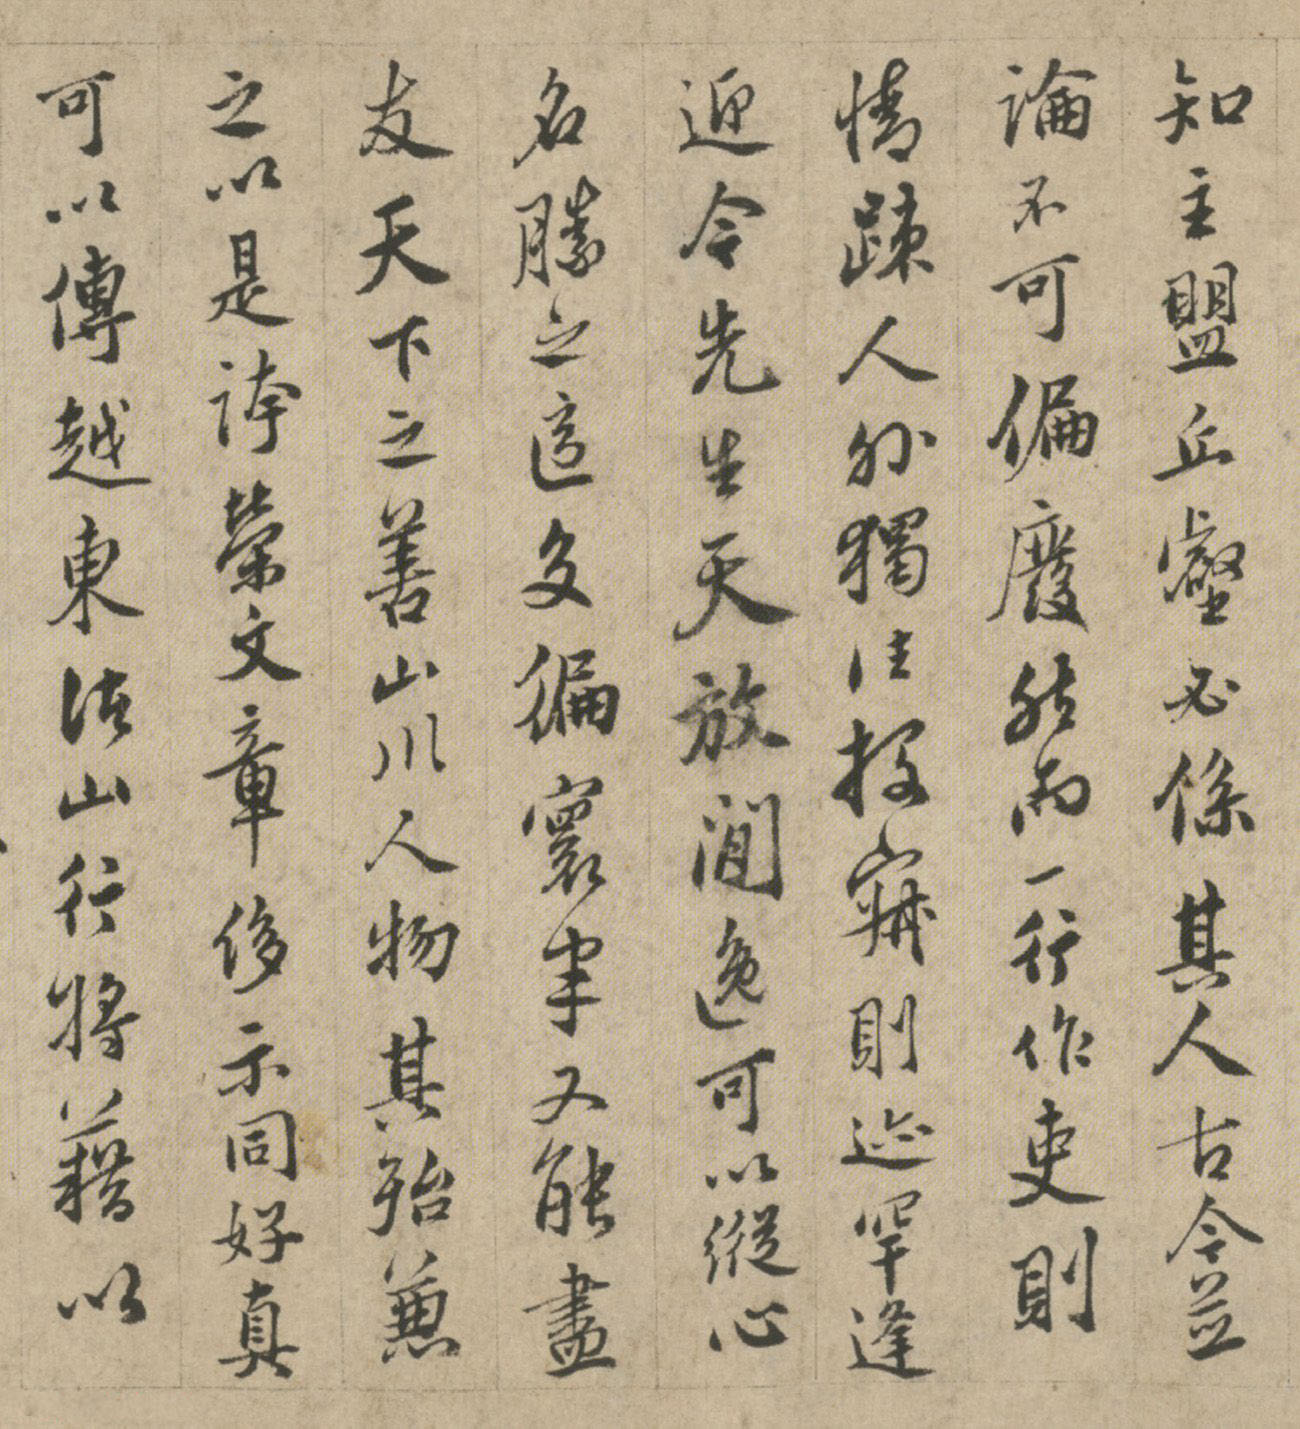 知主盟丘壑必係其人古今並
論不可偏廢然而一行作吏則
情疎人外獨往投簪則迹罕逢
迎今先生天放閒逸可以縱心
名勝之遊多徧寰宇又能盡
友天下之善山川人物其殆兼
之以是誇榮文章侈示同好真
可以傳越東法山行將藉以